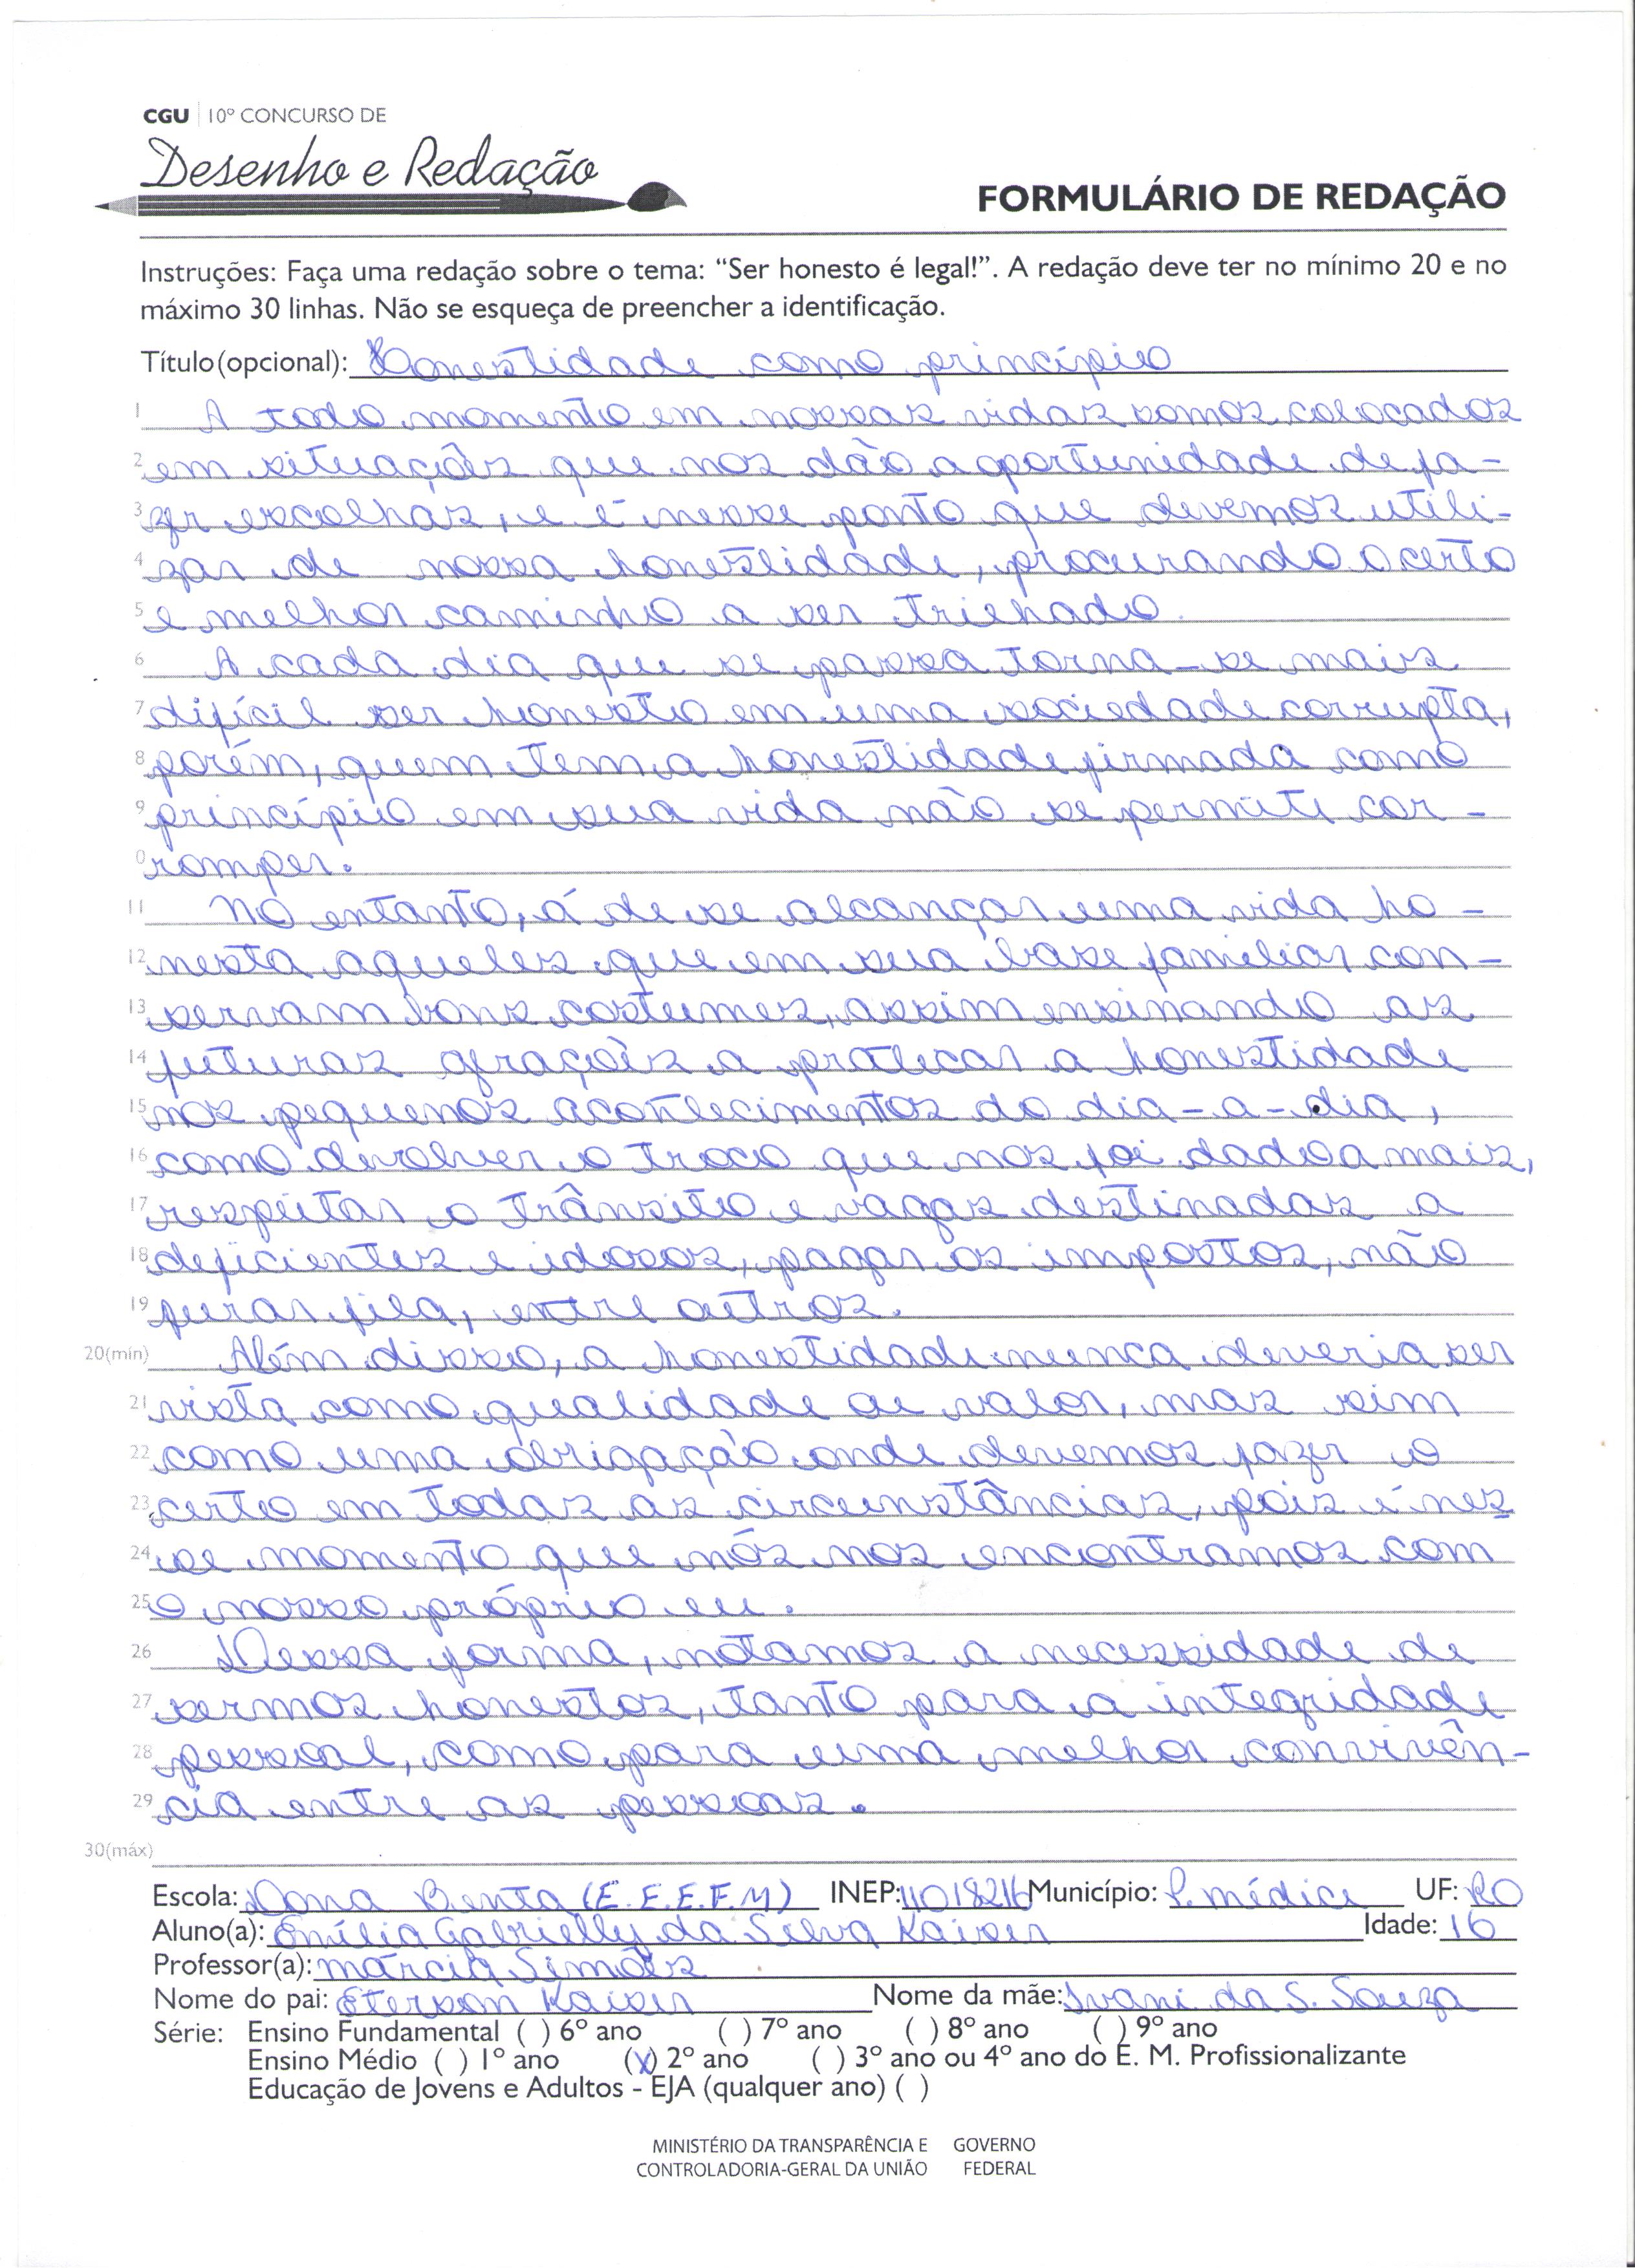 CGU | 10º CONCURSO DE
Desenho e Redação
FORMULÁRIO DE REDAÇÃO
Instruções: Faça uma redação sobre o tema: “Ser honesto é legal!”. A redação deve ter no mínimo 20 e no
máximo 30 linhas. Não se esqueça de preencher a identificação.
Título(opcional): Honestidade como princípio
1 A todo momento em nossas vidas somos colocados
2 em situações que nos dão a oportunidade de fa-
3 zer escolhas, e é nesse ponto que devemos utili-
4 zar de nossa honestidade, procurando o certo
5 e melhor caminho a ser trilhado.
6 A cada dia que se passa torna-se mais
7 difícil ser honesto em uma sociedade corrupta,
8 porém, quem tem a honestidade firmada como
9 princípio em sua vida não se permite cor-
0 romper.
11 No entanto, á de se alcançar uma vida ho-
12 nesta aqueles que em sua base familiar con-
13 servam bons costumes, assim ensinando as
14 futuras gerações a praticar a honestidade
15 nos pequenos acontecimentos do dia-a-dia,
16 como devolver o troco que nos foi dado a mais,
17 respeitar o trânsito e vagas destinadas a
18 deficientes e idosos, pagar os impostos, não
19 furar fila, entre outros.
20(mín) Além disso, a honestidade nunca deveria ser
21 vista como qualidade ou valor, mas sim
22 como uma obrigação onde devemos fazer o
23 certo em todas as circunstâncias, pois é nes
24 se momento que nós nos encontramos com
25 o nosso próprio eu.
26 Dessa forma, notamos a necessidade de
27 sermos honestos, tanto para a integridade
28 pessoal, como para uma melhor convivên-
29 cia entre as pessoas.
30(máx)
Escola: Dona Benta (E.E.E.F.M) INEP: 11018216 Município: P. médici UF: RO
Aluno(a): Emília Gabrielly da Silva Kaiser Idade: 16
Professor(a): márcia Simões
Nome do pai: Eterson Kaiser Nome da mãe: Ivani da S. Souza
Série: Ensino Fundamental ( ) 6º ano ( ) 7º ano ( ) 8º ano ( ) 9º ano
Ensino Médio ( ) 1º ano (x) 2º ano ( ) 3º ano ou 4º ano do E. M. Profissionalizante
Educação de Jovens e Adultos - EJA (qualquer ano) ( )
MINISTÉRIO DA TRANSPARÊNCIA E GOVERNO
CONTROLADORIA-GERAL DA UNIÃO FEDERAL